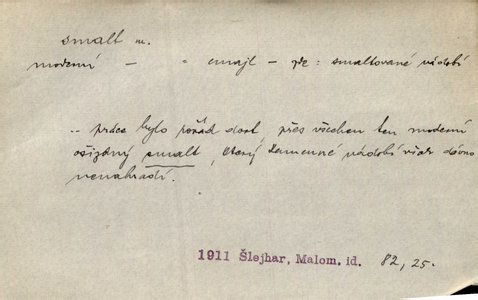 smalt m.
moderní — " email — př: smaltované nádobí
.. práce bylo pořád dost, přes všechen ten moderní
ošizený smalt, který kamenné nádobí však dávno
nenahradí.
1911 Šlejhar, Malom. id. 82, 25.